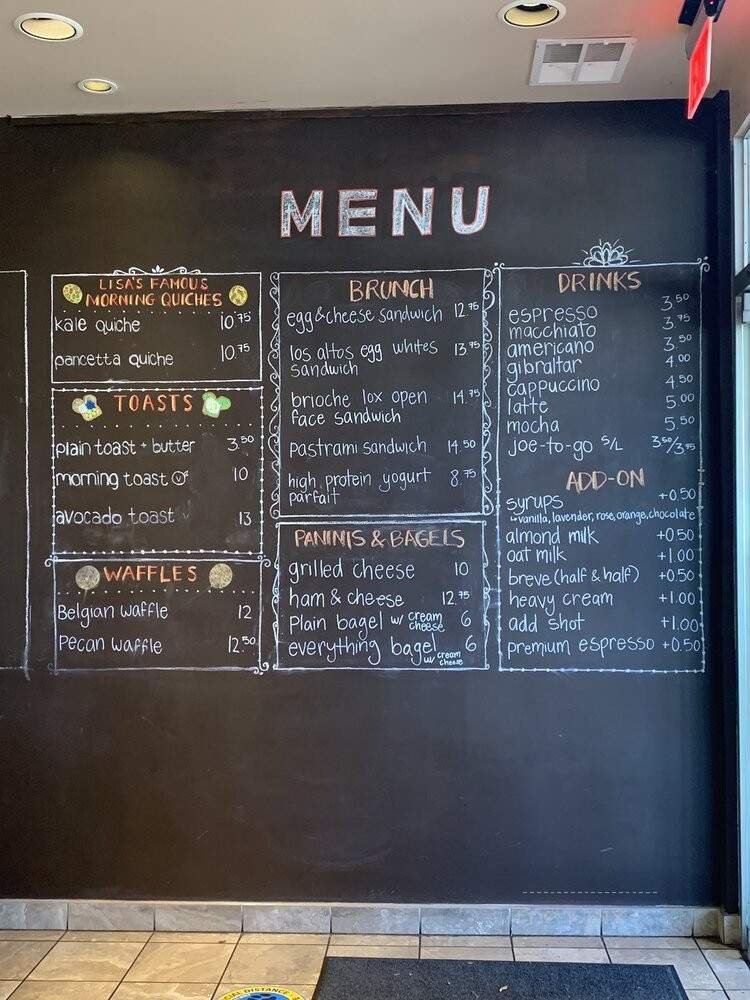 MENU
LISA'S FAMOUS
MORNING QUICHES
kale quiche 10.75
pancetta quiche 10.75
TOASTS
plain toast + butter 3.50
morning toast V 10
avocado toast V 13
WAFFLES
Belgian waffle 12
Pecan waffle 12.50
BRUNCH
egg & cheese sandwich 12.75
los altos egg whites 13.75
sandwich
brioche lox open 14.75
face sandwich
pastrami sandwich 14.50
high protein yogurt 8.75
parfait
PANINIS & BAGELS
grilled cheese 10
ham & cheese 12.75
Plain bagel w/ cream cheese 6
everything bagel w/ cream cheese 6
DRINKS
espresso 3.50
macchiato 3.75
americano 3.50
gibraltar 4.00
cappuccino 4.50
latte 5.00
mocha 5.50
joe-to-go S/L 3.50/3.75
ADD-ON
syrups +0.50
↳vanilla, lavender, rose, orange, chocolate
almond milk +0.50
oat milk +1.00
breve (half & half) +0.50
heavy cream +1.00
add shot +1.00
premium espresso +0.50
SOCIAL DISTANCE